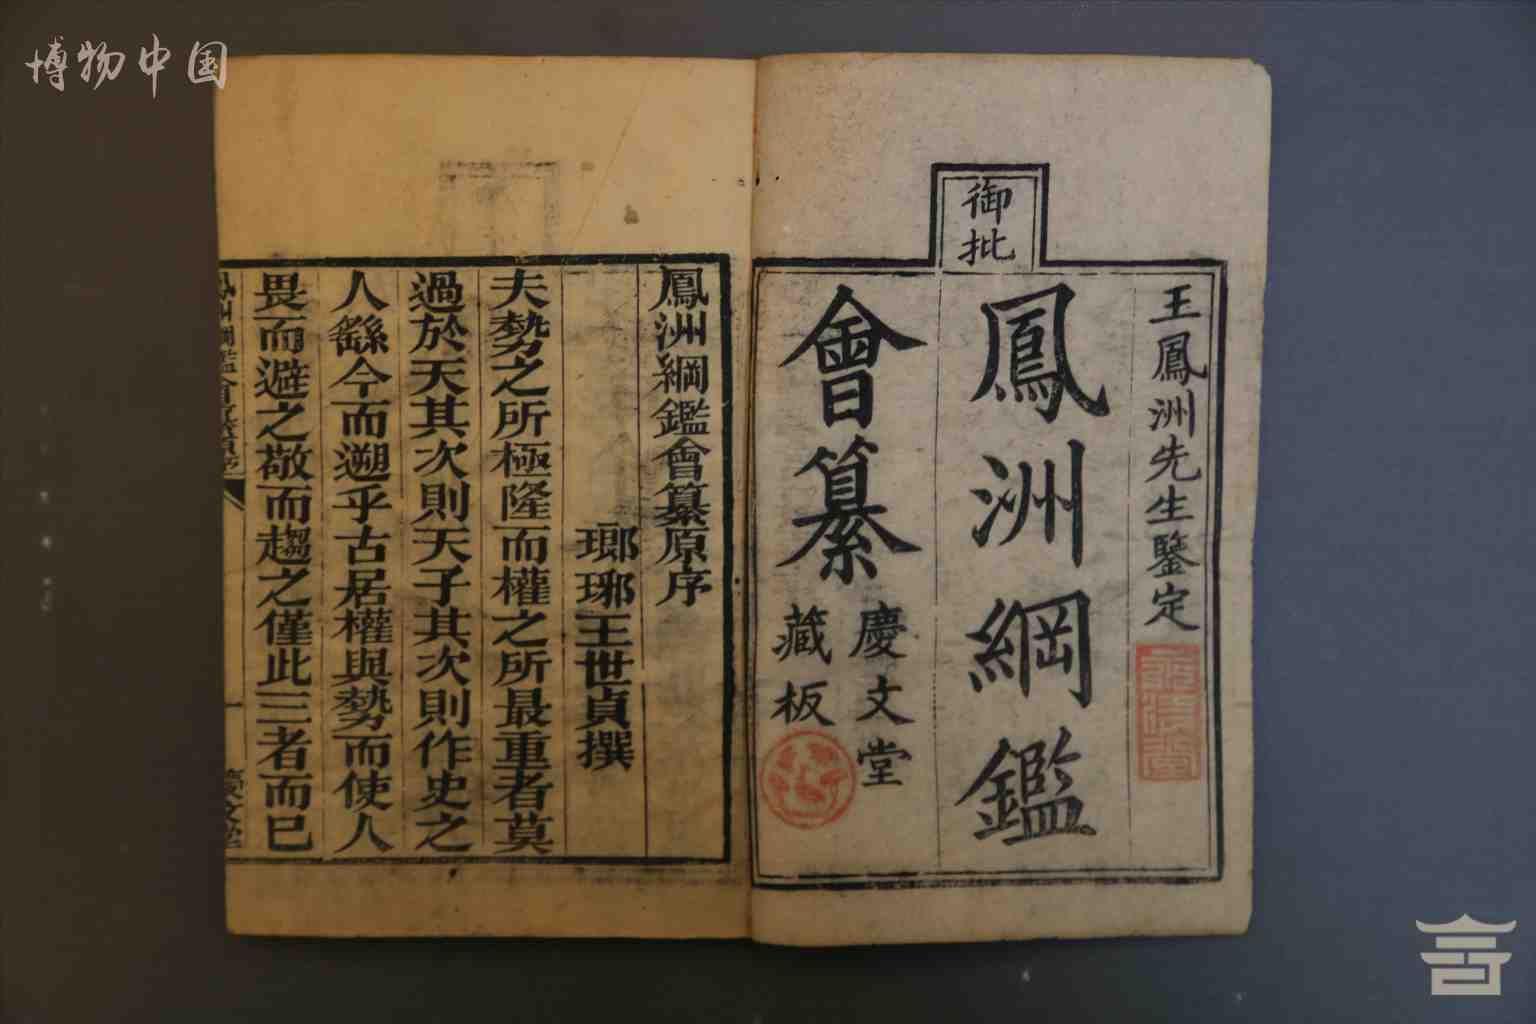 博物中国
御批
王鳳洲先生鑒定
鳳洲綱鑑
會纂
慶文堂
藏板
鳳洲綱鑑會纂原序
瑯琊王世貞撰
夫勢之所極隆而權之所最重者莫
過於天其次則天子其次則作史之
人繇今而遡乎古居權與勢而使人
畏而避之敬而趨之僅此三者而已